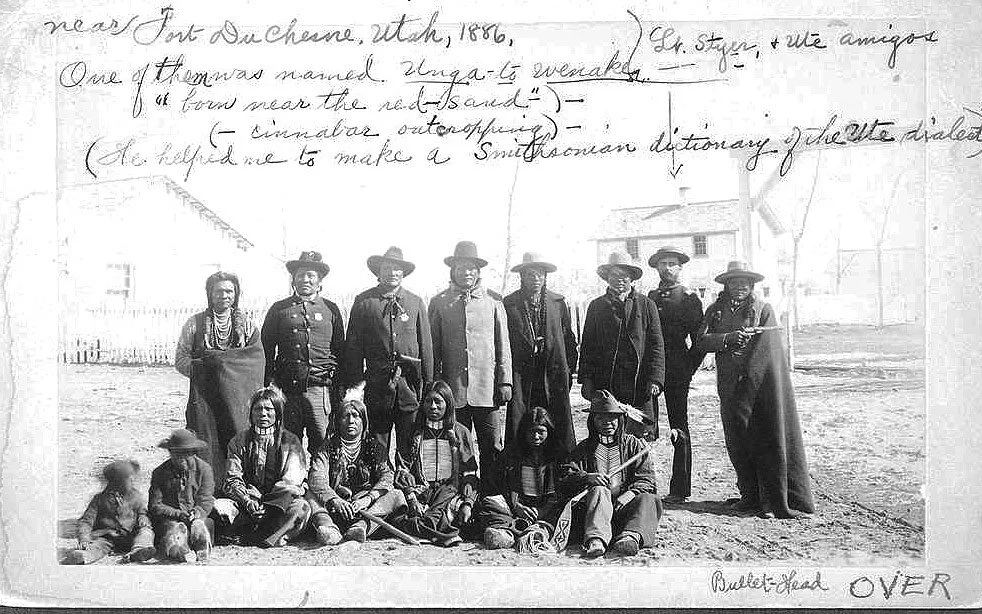 near Fort DuChesne, Utah, 1886,
) Lt. Styer, & Ute amigos
One of them was named Unga-to wenakes
" born near the red-sand" -) -
(- cinnabar outcropping) -
(He helped me to make a Smithsonian dictionary of the Ute dialect)
Bullet-Head OVER